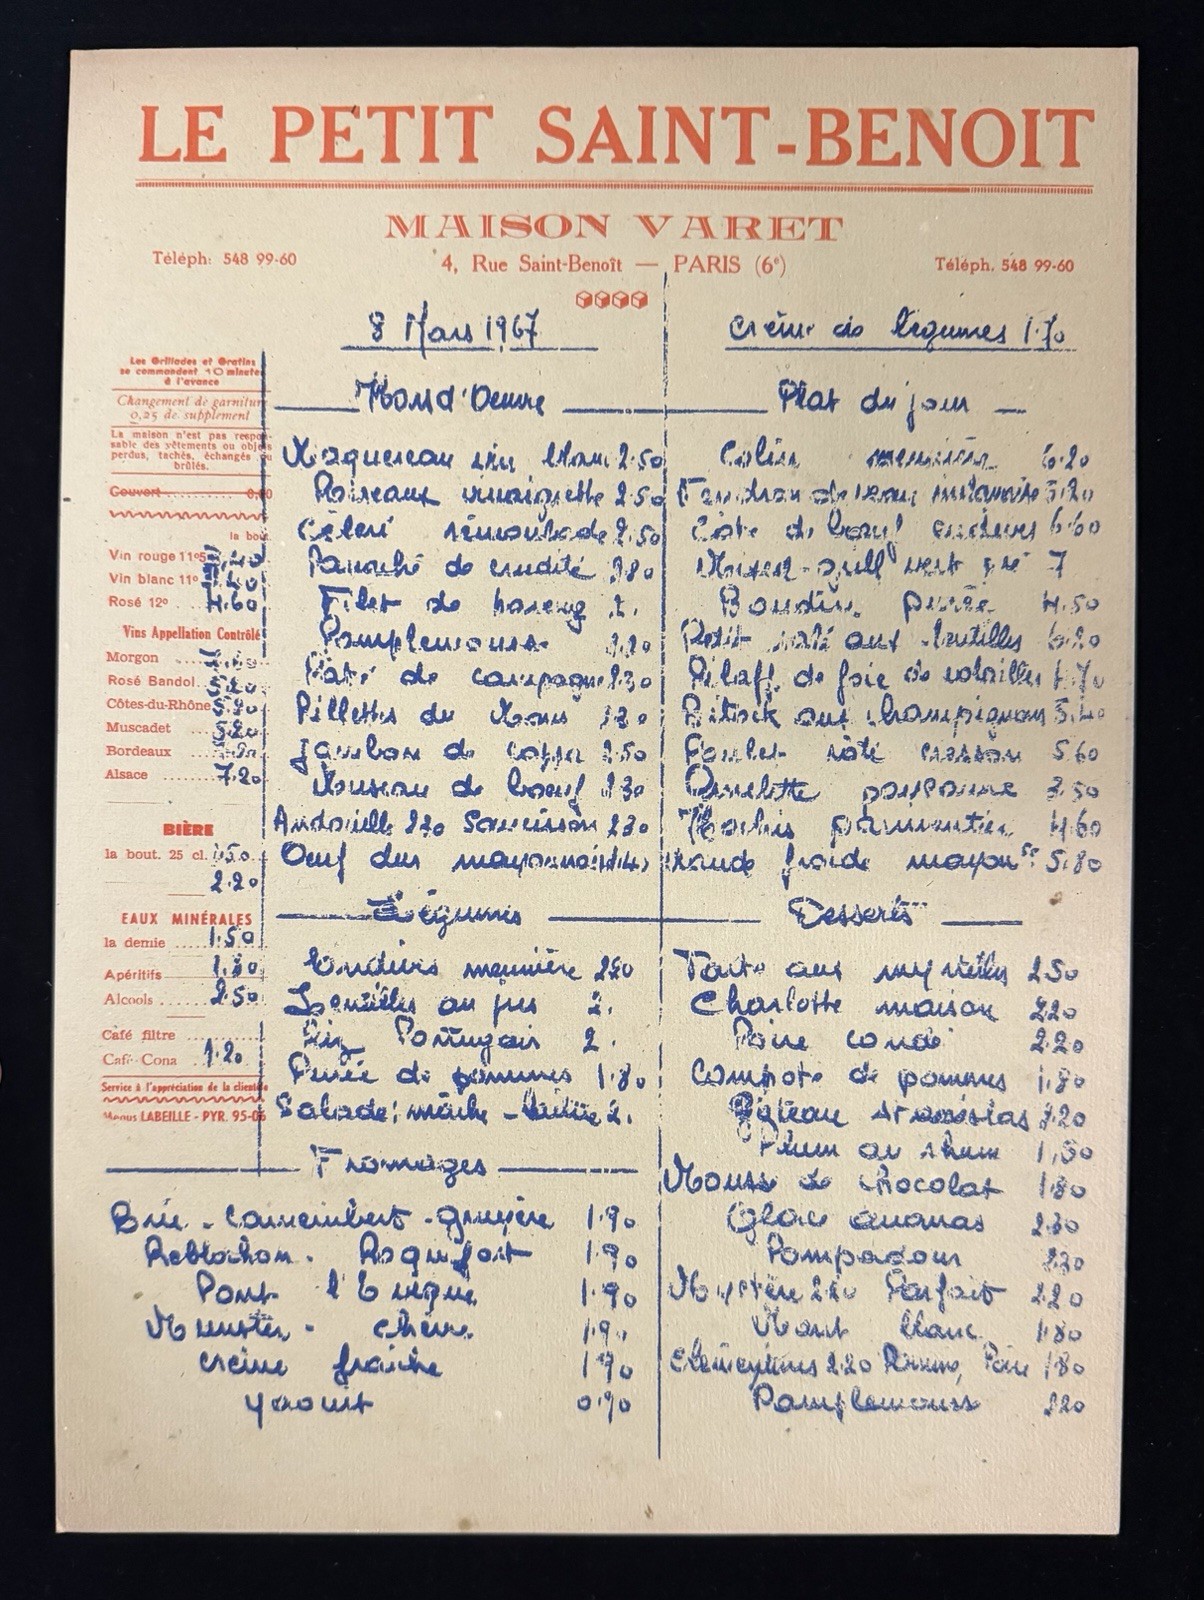 LE PETIT SAINT-BENOIT
MAISON VARET
Téléph: 548 99-60
4, Rue Saint-Benoît — PARIS (6e)
Téléph. 548 99-60
8 Mars 1967
Les Grillades et Gratins
se commandent 10 minutes
à l'avance
Changement de garniture
0,25 de supplément
La maison n'est pas respon-
sable des vêtements ou objets
perdus, tachés, échangés ou
brûlés.
Couvert
la bout.
Vin rouge 11°5
Vin blanc 11°
Rosé 12° 4.60
Vins Appellation Contrôlé
Morgon
Rosé Bandol 5.20
Côtes-du-Rhône 5.20
Muscadet 5.20
Bordeaux
Alsace 7.20
BIÈRE
la bout. 25 cl. 1.50
2.20
EAUX MINÉRALES
la demie 1.50
Apéritifs
Alcools 2.50
Café filtre
Café Cona 1.20
Service à l'appréciation de la clientèle
Menus LABEILLE - PYR. 95-06
Hors d'Oeuvre
Maquereau vin blanc 2.50
Poireaux vinaigrette 2.50
Céleri rémoulade 2.50
Panaché de crudité
Filet de hareng 2.
Pamplemousse 2.20
Pâté de campagne 2.30
Rillettes du Mans
Jambon de 2.50
Museau de boeuf 2.30
Andouille 2.20 Saucisson 2.30
Oeuf dur mayonnaise
Légumes
Endives meunière
Lentilles au jus 2.
Riz Portugais 2.
Purée de pommes 1.80
Salade: mâche - laitue 2.
Fromages
Brie - Camembert - gruyère 1.90
Reblochon - Roquefort 1.90
Pont l'Evêque 1.90
Munster - chèvre 1.90
crème fraîche 1.90
yaourt 0.90
Crème de légumes 1.70
Plat du jour
Colin meunière 6.20
Tendron de veau 5.20
Côte de boeuf endives 6.60
vert pré 7
Boudin purée 4.50
Petit salé aux lentilles 6.20
Pilaff de foie de volailles 4.70
Bitock aux champignons
Poulet rôti cresson 5.60
Omelette paysanne 3.50
Hachis parmentier 4.60
Viande froide mayonse 5.80
Desserts
Tarte aux myrtilles 2.50
Charlotte maison 2.20
Poire condé 2.20
Compote de pommes 1.80
Gâteau 2.20
au rhum
Mousse de chocolat 1.80
Glace ananas 2.30
Pompadour 2.30
Mystère 2.20 Parfait 2.20
Mont blanc 1.80
Clémentines 2.20 Pomme, Poire 1.80
Pamplemousse 2.20